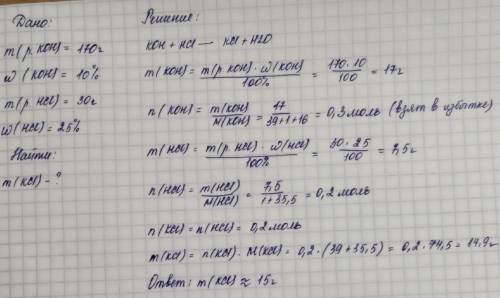 Дано:
m(р. KOH) = 170г
ω (KOH) = 10%
m(р. HCl) = 30г
ω(HCl) = 25%
Найти:
m(KCl) - ?
Решение:
KOH + HCl — KCl + H2O
m(KOH) = m(р. KOH) · ω(KOH) / 100% = 170 · 10 / 100 = 17г
n(KOH) = m(KOH) / M(KOH) = 17 / 39+1+16 = 0,3 моль (взят в избытке)
m(HCl) = m(р. HCl) · ω(HCl) / 100% = 30 · 25 / 100 = 7,5г
n(HCl) = m(HCl) / M(HCl) = 7,5 / 1+35,5 = 0,2 моль
n(KCl) = n(HCl) = 0,2 моль
m(KCl) = n(KCl) · M(KCl) = 0,2 · (39+35,5) = 0,2 · 74,5 = 14,9г
Ответ: m(KCl) ≈ 15г